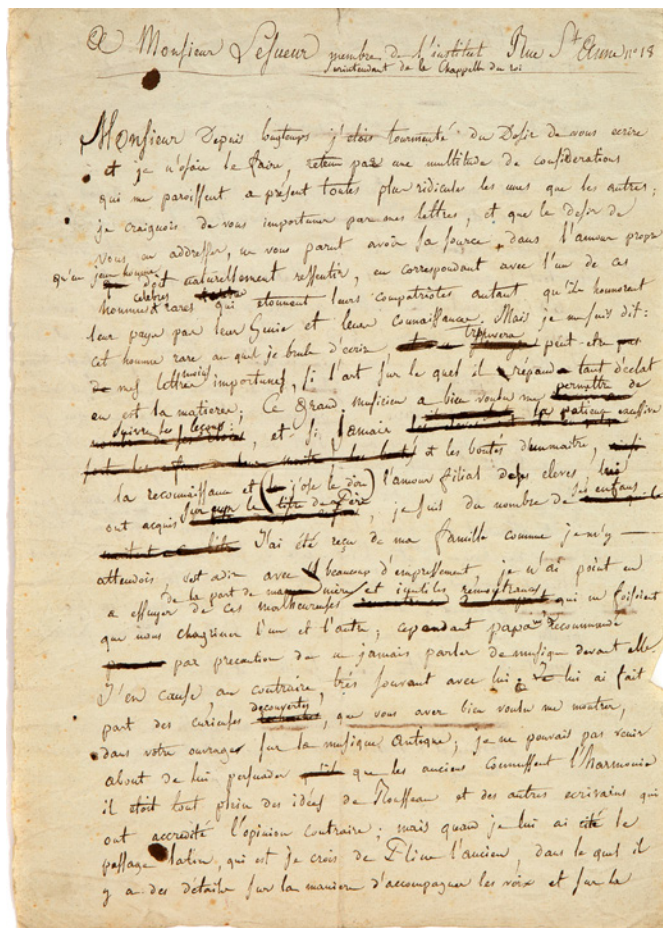 A Monsieur Lesueur membre de l'institut Rue St Anne n° 18
surintendant de la Chappelle du roi
Monsieur Depuis longtems j'étois tourmenté du Desir de vous ecrire
et je n'osois le faire, retenu par une multitude de considerations
qui me paroissent a présent toutes plus ridicules les unes que les autres;
je craignois de vous importuner par mes lettres, et que le desir de
vous en addresser, ne vous parut avoir sa source dans l'amour propre
qu'un jeune homme
doit naturellement ressentir, en correspondant avec l'un de ces
celebres
hommes rares qui etonnent leurs compatriotes autant qu'ils honorent
leur pays par leur Genie et leur connaissance. Mais je me suis dit:
cet homme rare au quel je brule d'ecrire trouvera peut-etre
moins
mes lettres importunes, si l'art sur le quel il répand tant d'éclat
en est la matiere; Ce grand musicien a bien voulu me permettre de
suivre ses leçons, et si jamais
les bontés et les boutés d'un maitre,
la reconnaissance et (si j'ose le dire) l'amour filial de ses eleves lui
ont acquis sur eux le titre de Père, je suis du nombre de ses enfans
J'ai été reçu de ma famille comme je m'y
attendois, c'est a dire avec beaucoup d'empressement, je n'ai point eu
de la part de maman
a essuyer de ces malheureuses et inutiles rémontrances qui ne faisoient
que nous chagriner l'un et l'autre; cependant papa m'a recommandé
par precaution de ne jamais parler de musique devant elle.
J'en cause, au contraire, très souvant avec lui; Je lui ai fait
part des curieuses decouvertes, que vous avez bien voulu me montrer,
dans votre ouvrage sur la musique antique; je ne pouvais pas venir
about de lui persuader que les anciens connussent l'harmonie
il étoit tout plein des idées de Rousseau et des autres ecrivains qui
ont accrédité l'opinion contraire; mais quand je lui ai cité le
passage latin, qui est je crois de Pline l'ancien, dans le quel il
y a des détails sur la maniere d'accompagner les voix et sur la